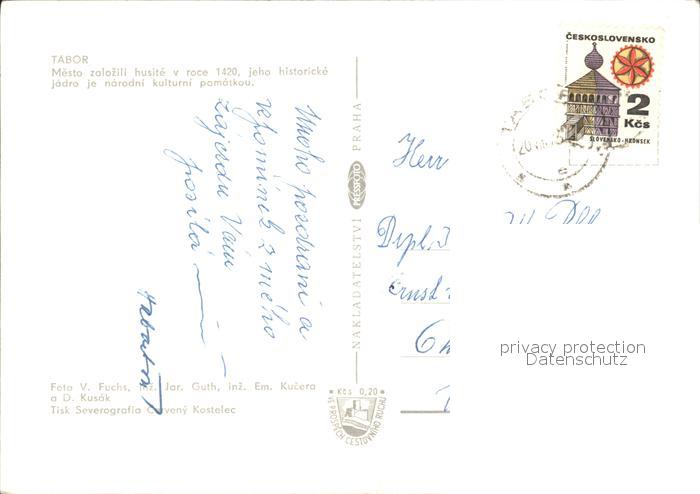 TÁBOR
Město založili husité v roce 1420, jeho historické
jádro je národní kulturní památkou.
Mnoho pozdravů a
vzpomínek z mého
zájezdu Vám
posílá
Foto V. Fuchs, inž. Jar. Guth, inž. Em. Kučera
a D. Kusák
Tisk Severografia Červený Kostelec
NAKLADATELSTVÍ PRESSFOTO PRAHA
Kčs 0,20
VE PROSPĚCH CESTOVNÍHO RUCHU
ČESKOSLOVENSKO
2
Kčs
SLOVENSKO-HRONSEK
Herr
Dipl.
Ernst
DDR
privacy protection
Datenschutz